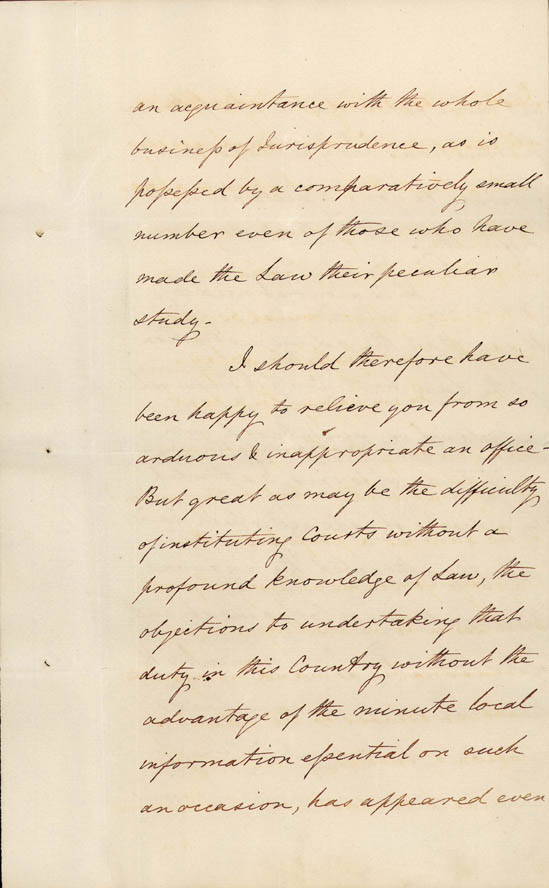 an acquaintance with the whole
business of Jurisprudence, as is
possessed by a comparatively small
number even of those who have
made the Law their peculiar
study.
I should therefore have
been happy to relieve you from so
arduous & inappropriate an office -
But great as may be the difficulty
of instituting Courts without a
profound knowledge of Law, the
objections to undertaking that
duty in this Country without the
advantage of the minute local
information essential on such
an occasion, has appeared even